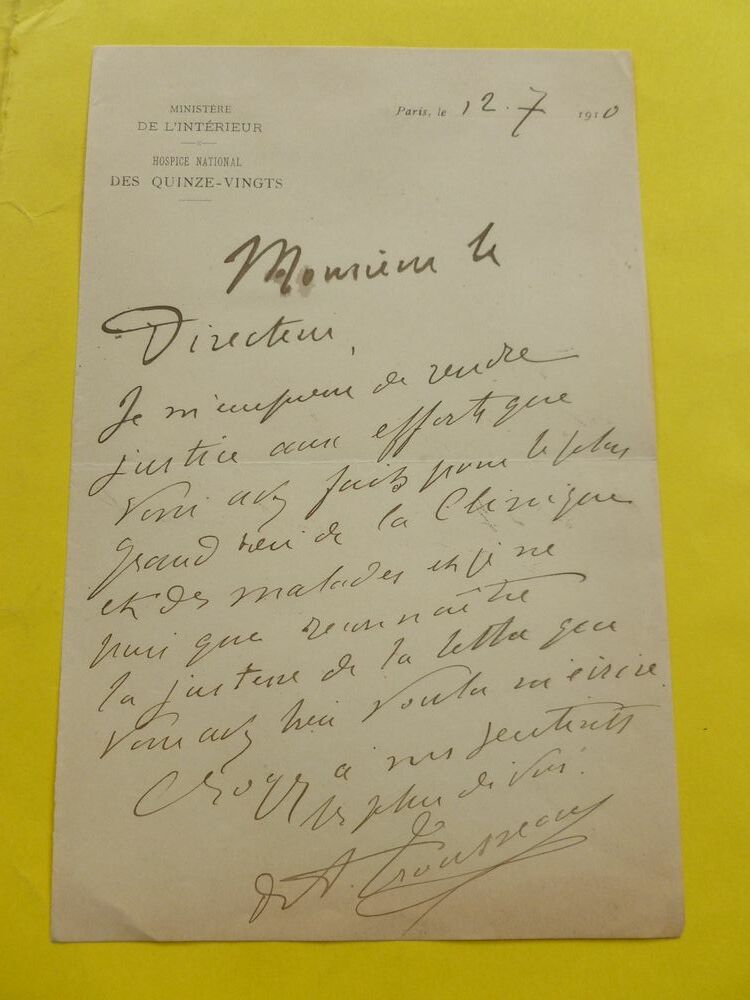 MINISTÈRE
DE L'INTÉRIEUR
HOSPICE NATIONAL
DES QUINZE-VINGTS
Paris, le 12.7 1910
Monsieur le
Directeur,
Je m'empresse de rendre
justice aux efforts que
vous avez faits pour le plus
grand bien de la Clinique
et des malades et je ne
puis que reconnaître
la justesse de la lettre que
vous avez bien voulu m'écrire
Croyez à mes sentiments
les plus dévoués.
Dr A. Trousseau